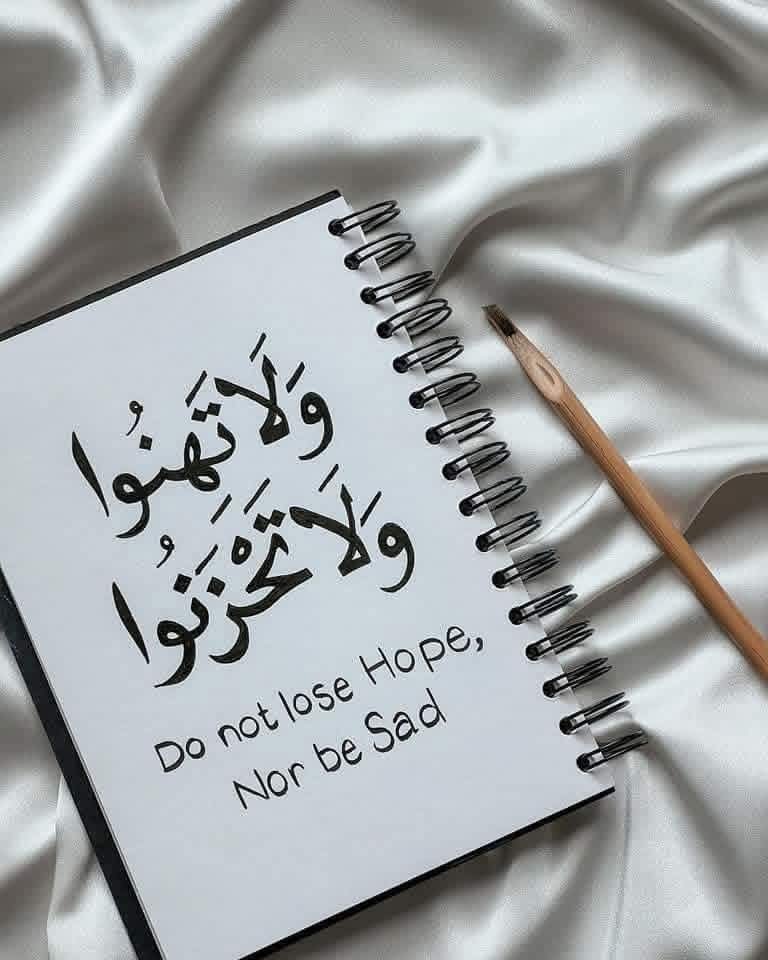 وَلَا تَهِنُوا
وَلَا تَحْزَنُوا
Do not lose Hope,
Nor be Sad